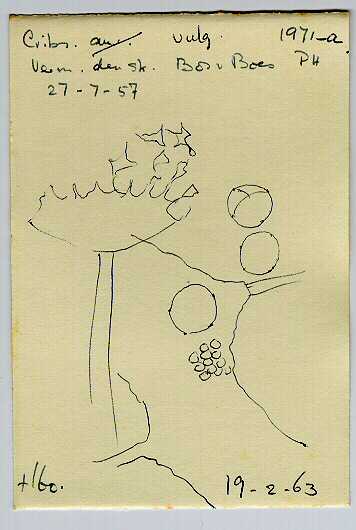 Cribr. aur. vulg. 1971-a
Verm. den sk. Bos v Boes PH
27-7-57
± 160.
19-2-63